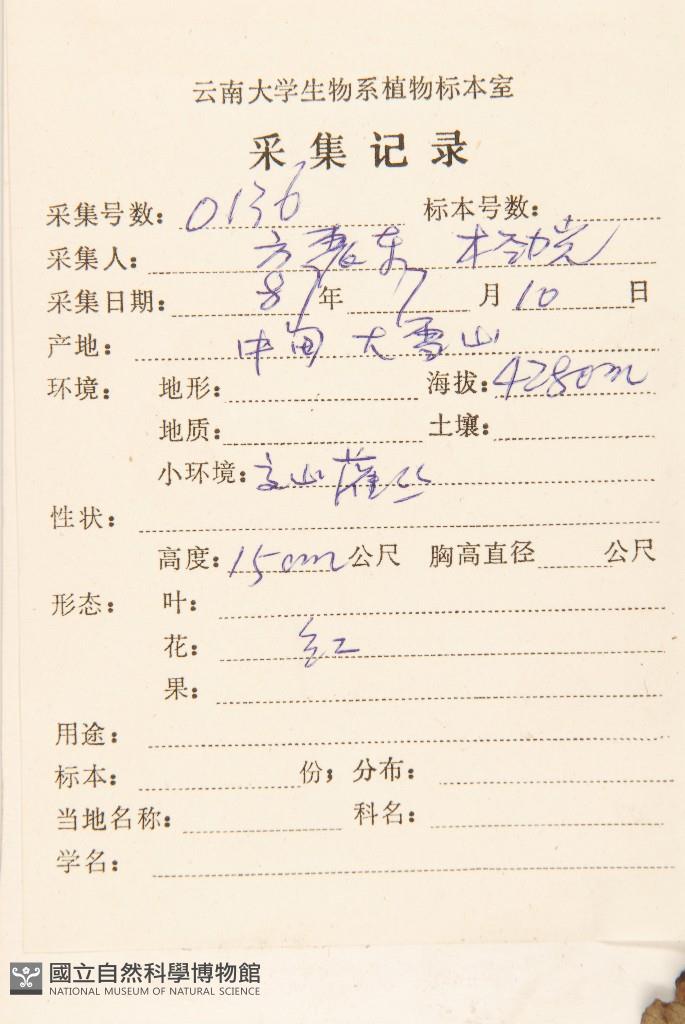 云南大学生物系植物标本室
采集记录
采集号数: 0136 标本号数:
采集人: 方震东
采集日期: 87年 7月10日
产地: 中甸 大雪山
环境: 地形: 海拔: 4280m
地质: 土壤:
小环境: 高山灌丛
性状:
高度: 15cm 公尺 胸高直径 公尺
形态: 叶:
花: 红
果:
用途:
标本: 份; 分布:
当地名称: 科名:
学名:
國立自然科學博物館
NATIONAL MUSEUM OF NATURAL SCIENCE